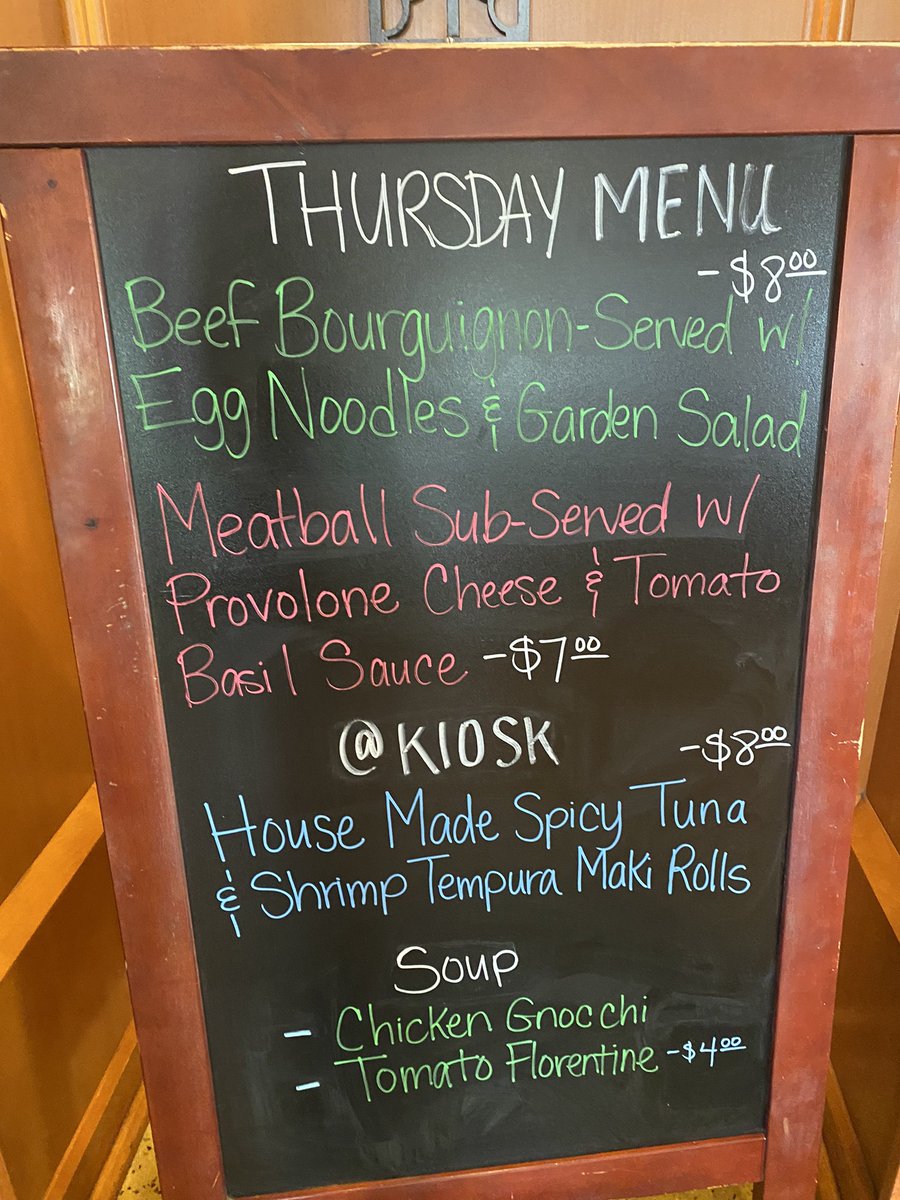 THURSDAY MENU
-$8.00
Beef Bourguignon-Served w/
Egg Noodles & Garden Salad
Meatball Sub-Served w/
Provolone Cheese & Tomato
Basil Sauce -$7.00
@KIOSK
-$8.00
House Made Spicy Tuna
& Shrimp Tempura Maki Rolls
Soup
- Chicken Gnocchi
- Tomato Florentine -$4.00